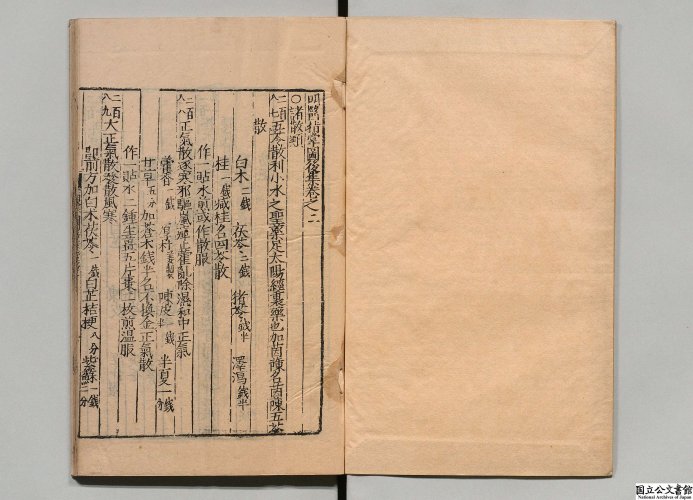 明醫指掌圖後集卷之二
○諸散類
二百八七五苓散利小水之聖藥足太陽經裏藥也加茵陳名茵陳五苓
散
白朮二錢 茯苓二錢 猪苓錢半 澤瀉錢半
桂一錢減桂名四苓散
作一貼水煎或作散服
二百八八正氣散逐寒邪驅嵐瘴止霍亂除濕和中正氣
藿香一錢 厚朴 陳皮 半夏一錢
甘草五分 加蒼朮錢半名不換金正氣散
作一貼水二鍾生薑五片棗一枚煎溫服
二百八九大正氣散發散風寒
即前方加白朮茯苓一錢白芷桔梗八分紫蘇一錢二分
国立公文書館
National Archives of Japan